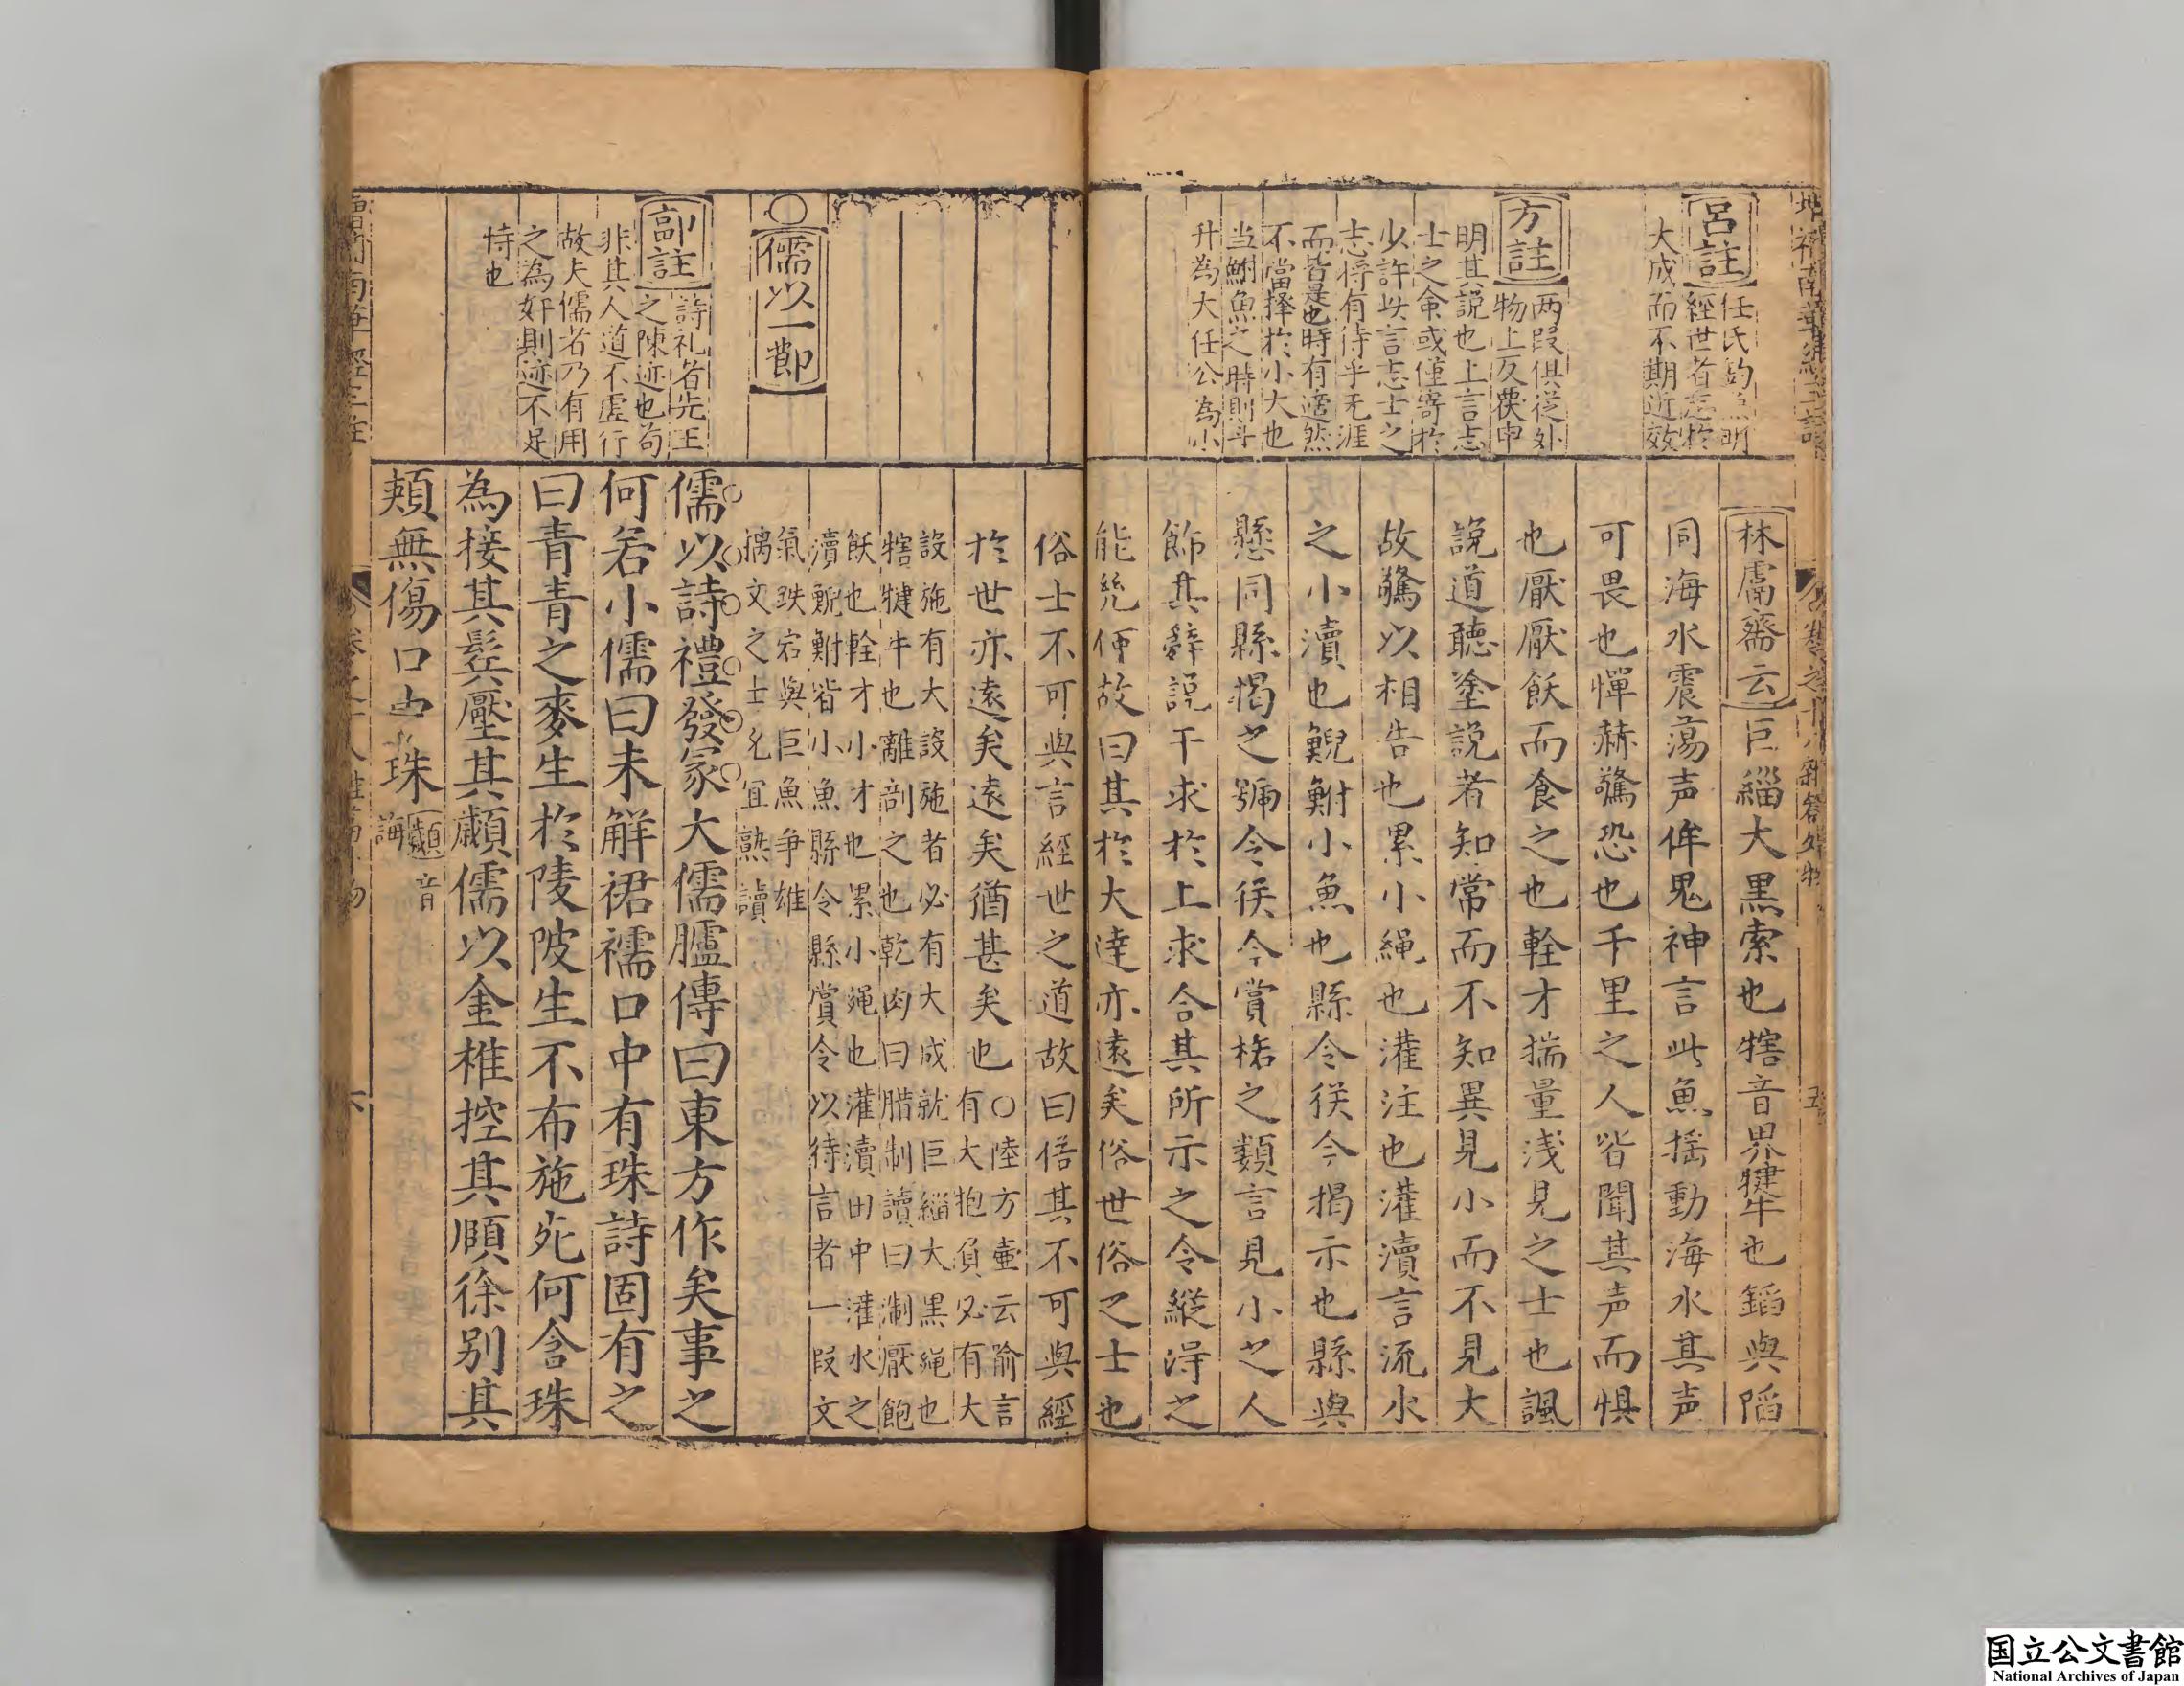 呂註
任氏釣魚明
經世者志於
大成而不期近效
方註
两段俱從外
物上反覆申
明其説也上言志
士之命或僅寄於
少許此言志士之
志将有待乎无涯
而皆是也時有適然
不當擇於小大也
当鮒魚之時則斗
升為大任公為小
林鬳齋云巨緇大黒索也犗音界犍牛也錎與陷
同海水震蕩声侔鬼神言此魚揺動海水其声
可畏也憚赫驚恐也千里之人皆聞其声而惧
也厭厭飫而食之也輇才揣量浅見之士也諷
説道聽塗説者知常而不知異見小而不見大
故驚以相告也累小繩也灌注也灌瀆言流水
之小瀆也鯢鮒小魚也縣令徔今揭示也縣與
懸同縣揭之號令徔今賞格之類言見小之人
飾其辭説干求於上求合其所示之令縱淂之
能統便故曰其於大逹亦遠矣俗世俗之士也
俗士不可與言經世之道故曰俗其不可與經
於世亦遠矣遠矣猶甚矣也〇陸方壷云喻言
有大抱負必有大
設施有大設施者必有大成就巨緇大黒繩也
犗犍牛也離剖之也乾肉曰腊制讀曰淛厭飽
飫也輇才小才也累小繩也灌瀆田中灌水之
瀆鯢鮒皆小魚縣令縣賞令以待言者一段文
氣跌宕與巨魚争雄
摛文之士尤宜熟讀
〇儒以一節
郭註
詩礼者先王
之陳迹也苟
非其人道不虚行
故夫儒者乃有用
之為奸則迹不足
恃也
儒以詩禮發冡大儒臚傳曰東方作矣事之
何若小儒曰未觧裙襦口中有珠詩固有之
曰青青之麥生於陵陂生不布施死何含珠
為接其鬂壓其顪儒以金椎控其頤徐别其
頰無傷口中珠
顪音
誨
国立公文書館
National Archives of Japan